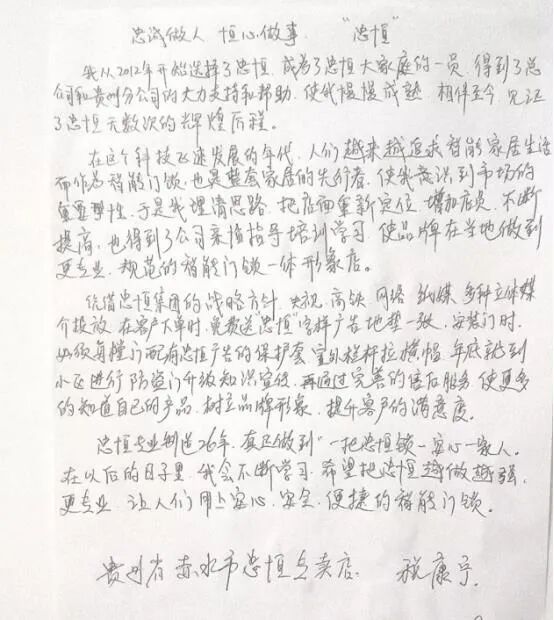 忠诚做人 恒心做事 “忠恒”
我从2012年开始选择了忠恒,成为了忠恒大家庭的一员,得到了总
公司和贵州分公司的大力支持和帮助,使我慢慢成熟,相伴至今,见证
了忠恒无数次的辉煌历程。
在这个科技飞速发展的年代,人们越来越追求智能家居生活
而作为智能门锁,也是整套家居的先行者,使我意识到市场的
重要性,于是我理清思路,把店面重新定位,增加店员,不断
提高,也得到了公司来指导培训学习,使品牌在当地做到
更专业、规范的智能门锁一体形象店。
凭借忠恒集团的战略方针,央视、高铁、网络、纸媒,多种立体媒
介投放,在客户下单时,免费送“忠恒”字样广告地垫一张,安装门时,
必须每樘门配有忠恒广告的保护套,室外栏杆拉横幅,年底就到
小区进行防盗门升级知识宣传,再通过完善的售后服务,使更多
的知道自己的产品,树立品牌形象,提升客户的满意度。
忠恒专业制造26年,真正做到“一把忠恒锁一安心一家人。
在以后的日子里,我会不断学习,希望把忠恒越做越强,
更专业,让人们用上安心、安全、便捷的智能门锁。
贵州省赤水市忠恒专卖店 税康宁